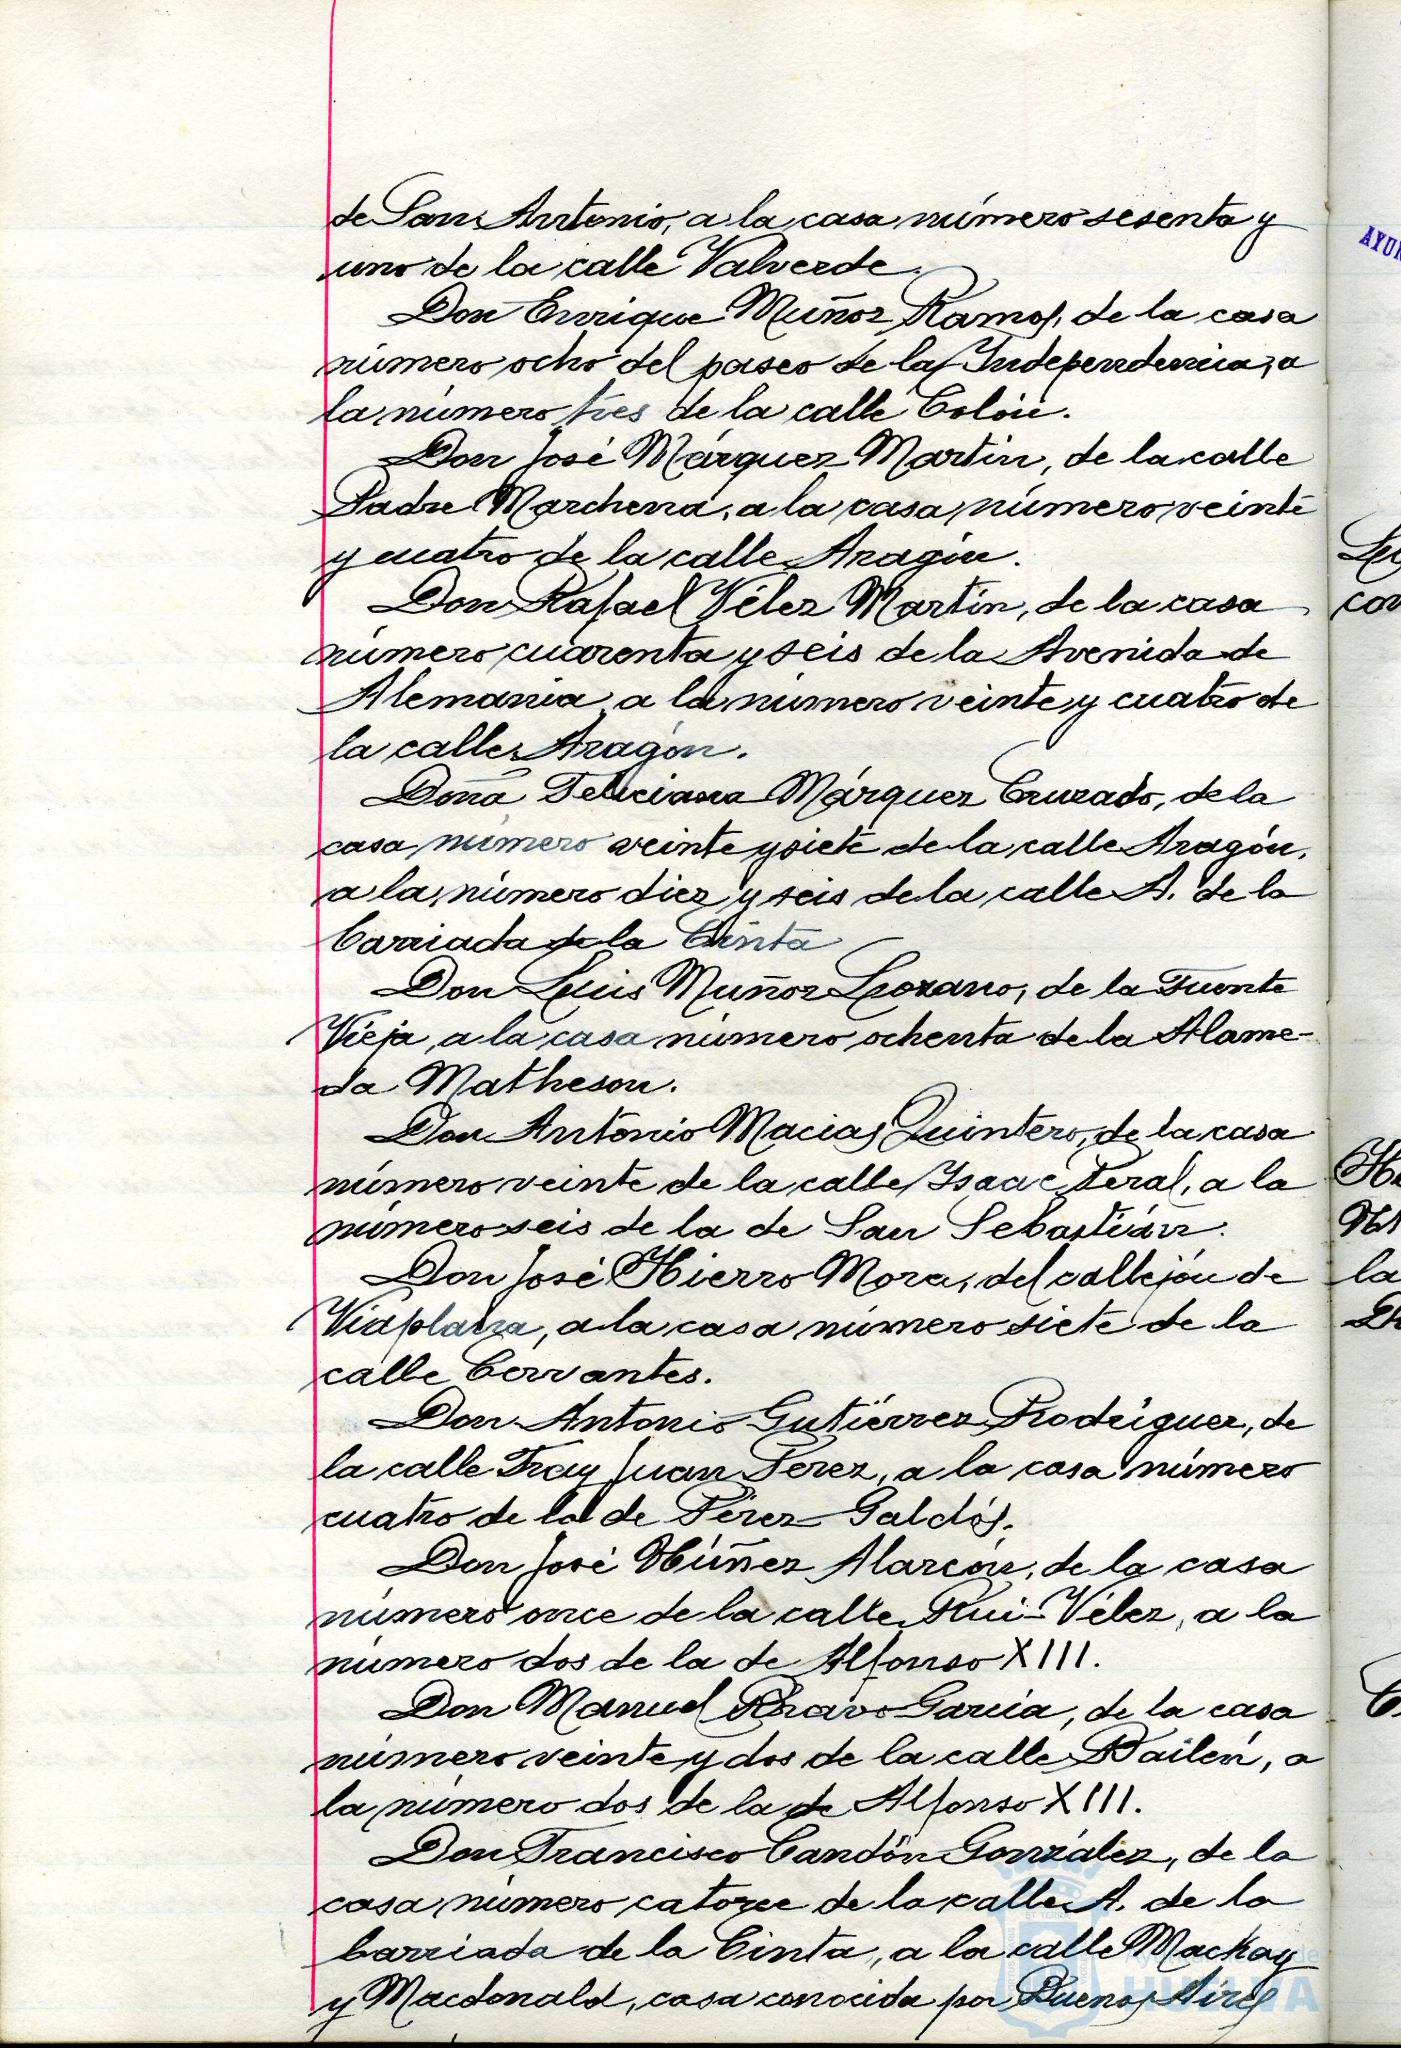 de San Antonio, a la casa número sesenta y
uno de la calle Valverde.
Don Enrique Muñoz Ramos, de la casa
número ocho del paseo de la Independencia, a
la número tres de la calle Colón.
Don José Márquez Martín, de la calle
Padre Marchena, a la casa número veinte
y cuatro de la calle Aragón.
Don Rafael Vélez Martín, de la casa
número cuarenta y seis de la Avenida de
Alemania a la número veinte y cuatro de
la calle Aragón.
Doña Feliciana Márquez Cruzado, de la
casa número veinte y siete de la calle Aragón,
a la número diez y seis de la calle A. de la
barriada de la Cinta
Don Luis Muñoz Lozano, de la Fuente
Vieja, a la casa número ochenta de la Alame-
da Matheson.
Don Antonio Macias Quintero, de la casa
número veinte de la calle Isaac Peral, a la
número seis de la de San Sebastián.
Don José Hierro Mora, del callejón de
Viaplana, a la casa número siete de la
calle Cervantes.
Don Antonio Gutiérrez Rodríguez, de
la calle Fray Juan Pérez, a la casa número
cuatro de la de Pérez Galdós.
Don José Núñez Alarcón, de la casa
número once de la calle Rui-Vélez, a la
número dos de la de Alfonso XIII.
Don Manuel Bravo García, de la casa
número veinte y dos de la calle Bailén, a
la número dos de la de Alfonso XIII.
Don Francisco Candón González, de la
casa número catorce de la calle A. de la
barriada de la Cinta, a la calle Mackay
y Macdonald, casa conocida por Buenos Aires
AYUN
con
la
HUELVA